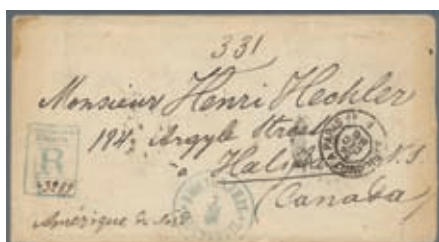 331
Monsieur Henri Hechler
194½ Argyle Street
à Halifax N.S.
(Canada)
R
Amérique du Nord